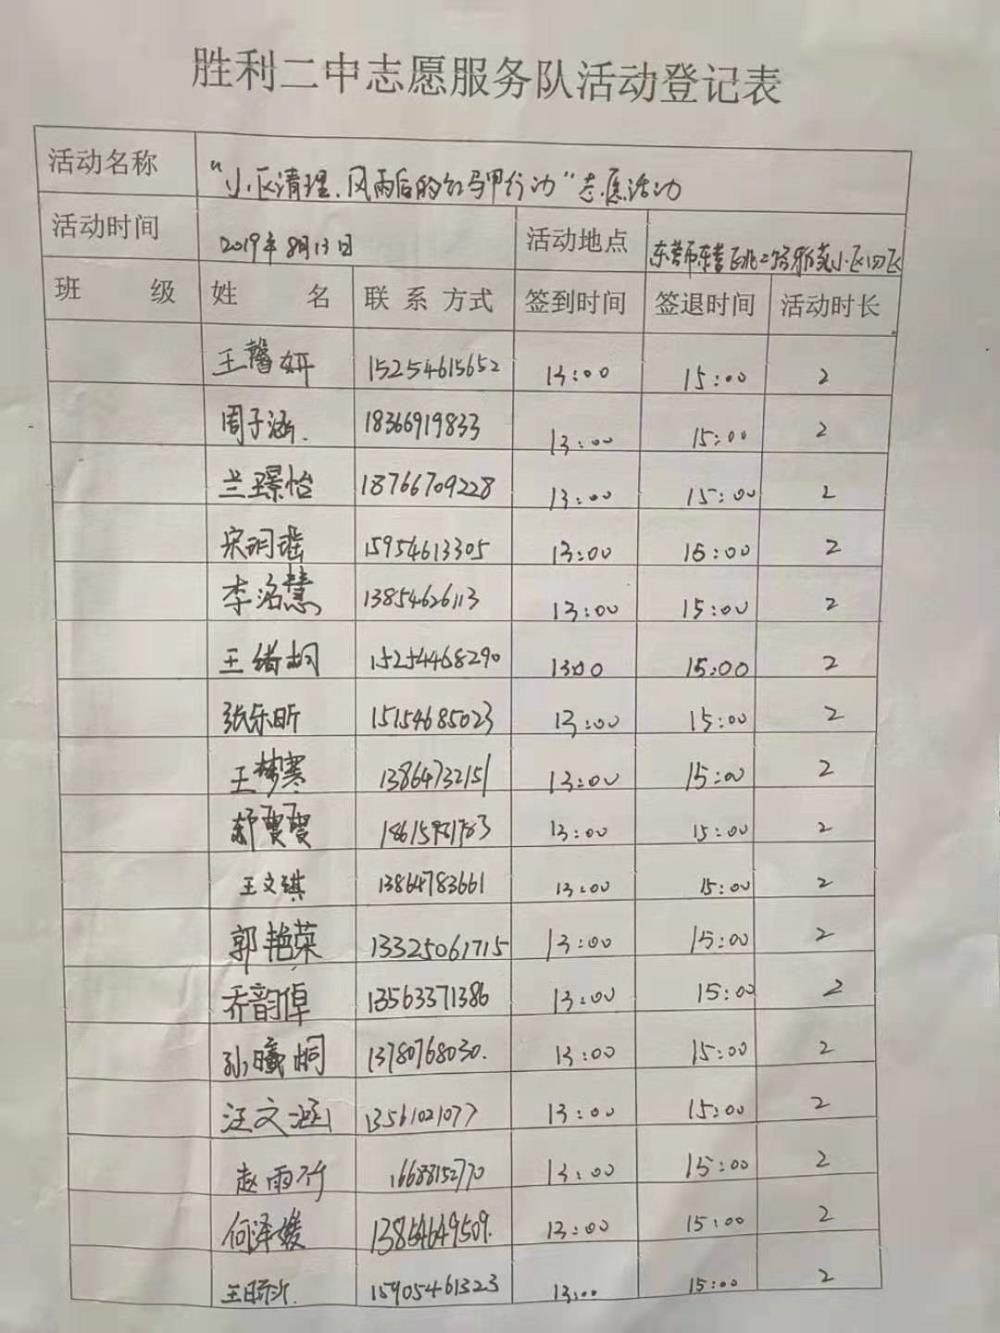 胜利二中志愿服务队活动登记表
活动名称 "小区清理、风雨后的红马甲行动"志愿活动
活动时间 2019年8月13日 活动地点 东营市东营区 二路 小区四区
班 级 姓 名 联系方式 签到时间 签退时间 活动时长
王馨妍 15254615652 13:00 15:00 2
周子涵. 18366919833 13:00 15:00 2
兰璟怡 18766709228 13:00 15:00 2
宋玥瑶 15954613305 13:00 15:00 2
李洺慧 13854626113 13:00 15:00 2
王绪桐 15254468290 13:00 15:00 2
张乐昕 15154685023 13:00 15:00 2
王梦寒 13864732151 13:00 15:00 2
郝贾贾 13:00 15:00 2
王文琪 13864783661 13:00 15:00 2
郭艳荣 13325061715 13:00 15:00 2
乔韵倬 13563371386 13:00 15:00 2
孙曦桐 13780768030. 13:00 15:00 2
汪文涵 13561021077 13:00 15:00 2
赵雨 16688152770 13:00 15:00 2
何泽媛 13864649509. 13:00 15:00 2
王 15905461323 13:00 15:00 2